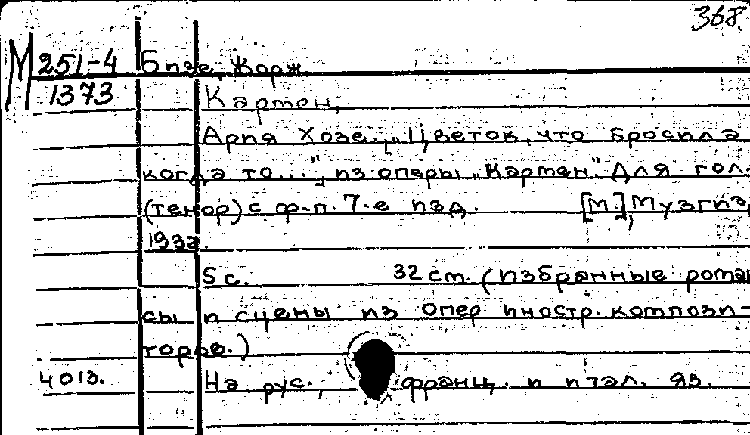 368
М 251-4 Бизе, Жорж.
1373 Кармен,
Ария Хозе „Цветок, что бросила
когда то...", из оперы „Кармен". Для гол.
(тенор) с ф-п. 7-е изд. [М.], Музгиз,
5 с. 32 см. (Избранные роман
сы и сцены из опер иностр. компози-
торов.)
4013. На рус., франц. и итал. яз.